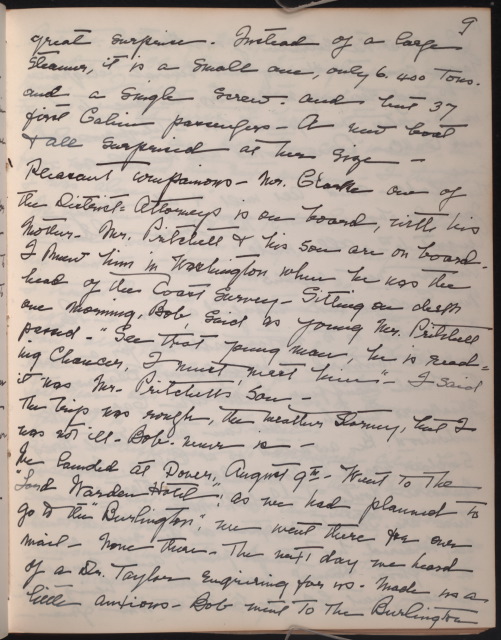 9
great surprise. Instead of a large
Steamer, it is a small one, only 6.400 Tons.
and a single screw. and but 37
first Cabin passengers - A new boat
& all surprised at her size -
Pleasant companions - Mr. Clarke one of
the District-Attorneys is on board, with his
Mother. Mr. Pritchett & his son are on board.
I knew him in Washington when he was the
head of the Coast Survey - Sitting on deck
one morning, Bob said as young Mr. Pritchett
passed - "See that young man, he is read-
ing Chaucer, I must meet him" - I said
it was Mr. Pritchett's son -
The trip was rough, the weather stormy, but I
was not ill - Bob never is -
We landed at Dover, August 9th - Went to the
"Lord Warden Hotel", as we had planned to
go to the "Burlington", we went there for our
mail - None there - The next day we heard
of a Dr. Taylor enquiring for us - Made us a
little anxious - Bob went to the Burlington